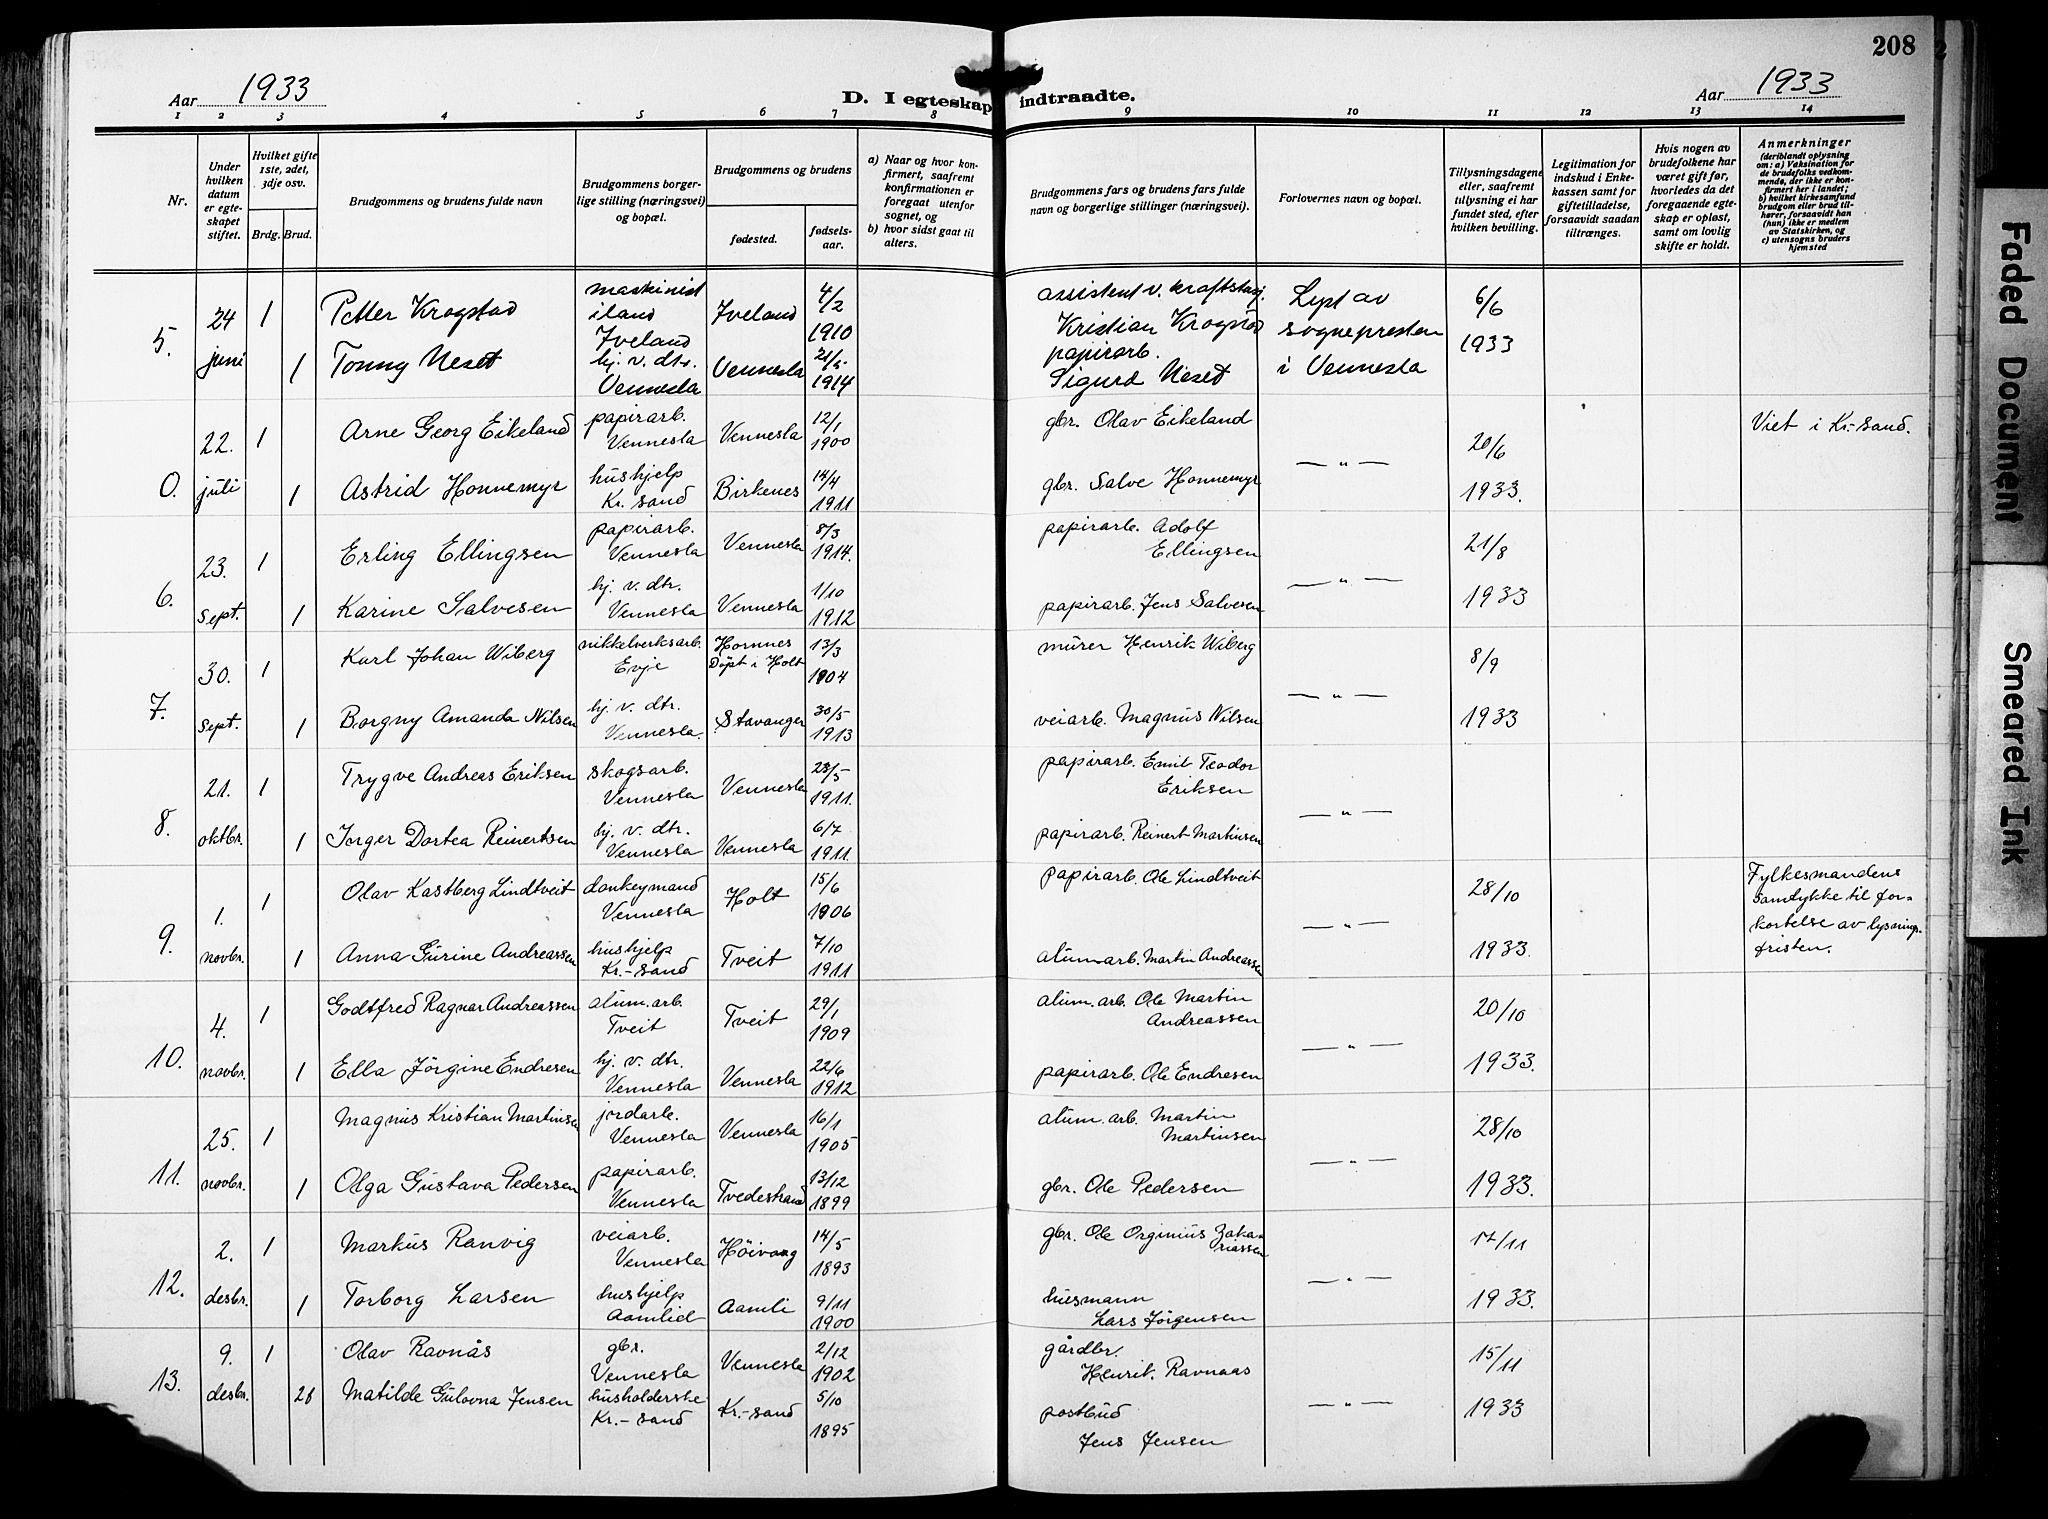 208
Aar 1933
D. I egteskap indtraadte.
Aar 1933
1 2 3 4 5 6 7 8 9 10 11 12 13 14
Nr.
Under hvilken datum er egteskapet stiftet.
Hvilket gifte 1ste, 2det, 3dje osv.
Brdg. Brud.
Brudgommens og brudens fulde navn
Brudgommens borgerlige stilling (næringsvei) og bopæl.
Brudgommens og brudens
fødested.
fødselsaar.
a) Naar og hvor konfirmert, saafremt konfirmationen er foregaat utenfor sognet, og
b) hvor sidst gaat til alters.
Brudgommens fars og brudens fars fulde navn og borgerlige stillinger (næringsvei).
Forlovernes navn og bopæl.
Tillysningsdagene eller, saafremt tillysning ei har fundet sted, efter hvilken bevilling.
Legitimation for indskud i Enkekassen samt for giftetilladelse, forsaavidt saadan tiltrænges.
Hvis nogen av brudefolkene har været gift før, hvorledes da det foregaaende egteskap er opløst, samt om lovlig skifte er holdt.
Anmerkninger
(deriblandt oplysning om: a) Vaksination for de brudefolks vedkommende, der ikke er konfirmert her i landet; b) hvilket kirkesamfund brudgom eller brud tilhører, forsaavidt han (hun) ikke er medlem av Statskirken, og c) utensogns bruders hjemsted
5. 24 juni
1 Petter Krogstad maskinist iland Iveland Iveland 4/2 1910 assistent v. kraftstasj. Kristian Krogstad
Lyst av sognepresten i Vennesla
6/6 1933
1 Tonny Neset hj. v. dtr. Vennesla Vennesla 1914 papirarb. Sigurd Neset
0. 22. juli
1 Arne Georg Eikeland papirarb. Vennesla Vennesla 12/1 1900 gbr. Olav Eikeland
— " — 20/6 1933. Viet i Kr.-sand.
1 Astrid Honnemyr hushjelp Kr. sand Birkenes 14/4 1911 gbr. Salve Honnemyr
6. 23. sept.
1 Erling Ellingsen papirarb. Vennesla Vennesla 8/3 1914. papirarb. Adolf Ellingsen
— " — 21/8 1933
1 Karine Salvesen hj. v. dtr. Vennesla Vennesla 1/10 1912 papirarb. Jens Salvesen
7. 30. sept.
1 Karl Johan Wiberg nikkelverksarb. Evje Hornnes Döpt i Holt 13/3 1904 murer Henrik Wiberg
— " — 8/9 1933
1 Borgny Amanda Nilsen hj. v. dtr. Vennesla. Stavanger 30/5 1913 veiarb. Magnus Nilsen
8. 21. oktbr.
1 Trygve Andreas Eriksen skogsarb. Vennesla Vennesla 23/5 1911. papirarb. Emil Teodor Eriksen
— " —
1 Inger Dortea Reinertsen hj. v. dtr. Vennesla Vennesla 6/7 1911. papirarb. Reinert Martinsen
9. 1. novbr.
1 Olav Kastberg Lindtveit donkeymand Vennesla Holt 15/6 1906 papirarb. Ole Lindtveit
— " — 28/10 1933. Fylkesmandens samtykke til forkortelse av lysningsfristen.
1 Anna Gurine Andreassen hushjelp Kr.-sand Tveit 7/10 1911 alum.arb. Martin Andreassen
10. 4. novbr.
1 Godtfred Ragnar Andreassen alum. arb. Tveit Tveit 29/1 1909 alum. arb. Ole Martin Andreassen
— " — 20/10 1933.
1 Ella Jörgine Endresen hj. v. dtr. Vennesla Vennesla 22/6 1912 papirarb. Ole Endresen
11. 25. novbr.
1 Magnus Kristian Martinsen jordarb. Vennesla Vennesla 16/1 1905 alum. arb. Martin Martinsen
— " — 28/10 1933.
1 Olga Gustava Pedersen papirarb. Vennesla Tvedestrand 13/12 1899 gbr. Ole Pedersen
12. 2. desbr.
1 Markus Ranvig veiarb. Vennesla Höivaag 14/5 1893 gbr. Ole Orginius Zakariassen
— " — 17/11 1933.
1 Torborg Larsen hushjelp Aamlid Aamli 9/11 1900 husmann Lars Jörgensen
13. 9. desbr.
1 Olav Ravnås gbr. Vennesla Vennesla 2/12 1902 gårdbr. Henrik Ravnaas
— " — 15/11 1933
Matilde Gulovna Jensen husholderske Kr.-sand Kr.-sand 5/10 1895 postbud Jens Jensen
Faded Document
Smeared Ink